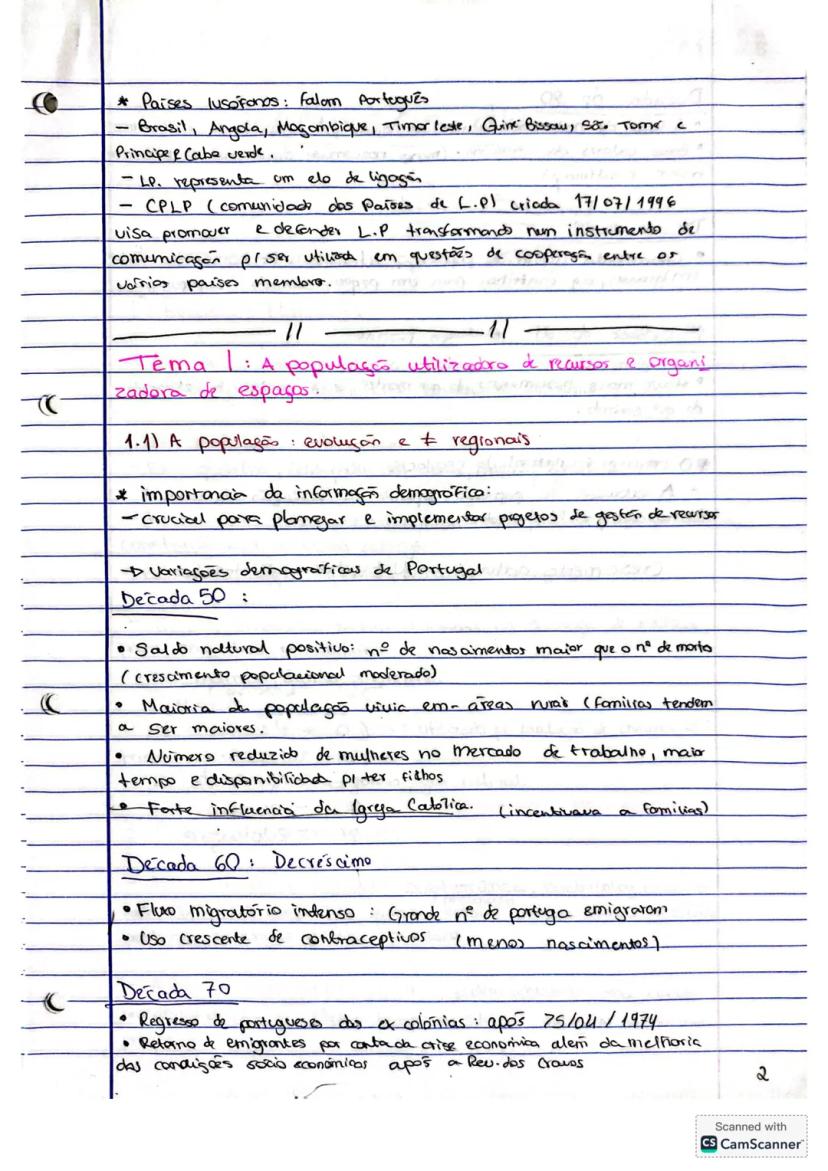 * Países lusófonos: Falam Português
- Brasil, Angola, Moçambique, Timor leste, Guiné Bissau, São Tomé e
Principe e Cabo verde.
- LP. representa um elo de ligação
- CPLP (comunidade dos Países de L.P) criada 17/07/1996
visa promover e defender L.P transformando num instrumento de
comunicação p/ ser utilizada em questões de cooperação entre os
vários países membro.
// //
Tema 1: A população utilizadora de recursos e organi
zadora de espaços.
1.1) A população: evolução e ≠ regionais
* importancia da informação demográfica:
- crucial para planejar e implementar projetos de gestão de recursos
→ Variações demográficas de Portugal
Década 50:
• Saldo natural positivo: nº de nascimentos maior que o nº de morto
(crescimento populacional moderado)
• Maioria da população vivia em áreas rurais (familias tendem
a ser maiores.
• Número reduzido de mulheres no mercado de trabalho, maior
tempo e disponibilidade p/ ter filhos
• Forte influencia da Igreja Católica. (incentivava a familias)
Década 60: Decréscimo
• Fluxo migratório intenso: Grande nº de portuga emigraram
• Uso crescente de contraceptivos (menos nascimentos)
Década 70
• Regresso de portugueses das ex colónias: após 25/04/1974
• Retorno de emigrantes por conta da crise económica alem da melhoria
das condições sócio económicas após a Rev. dos Cravos
2
Scanned with
CS CamScanner